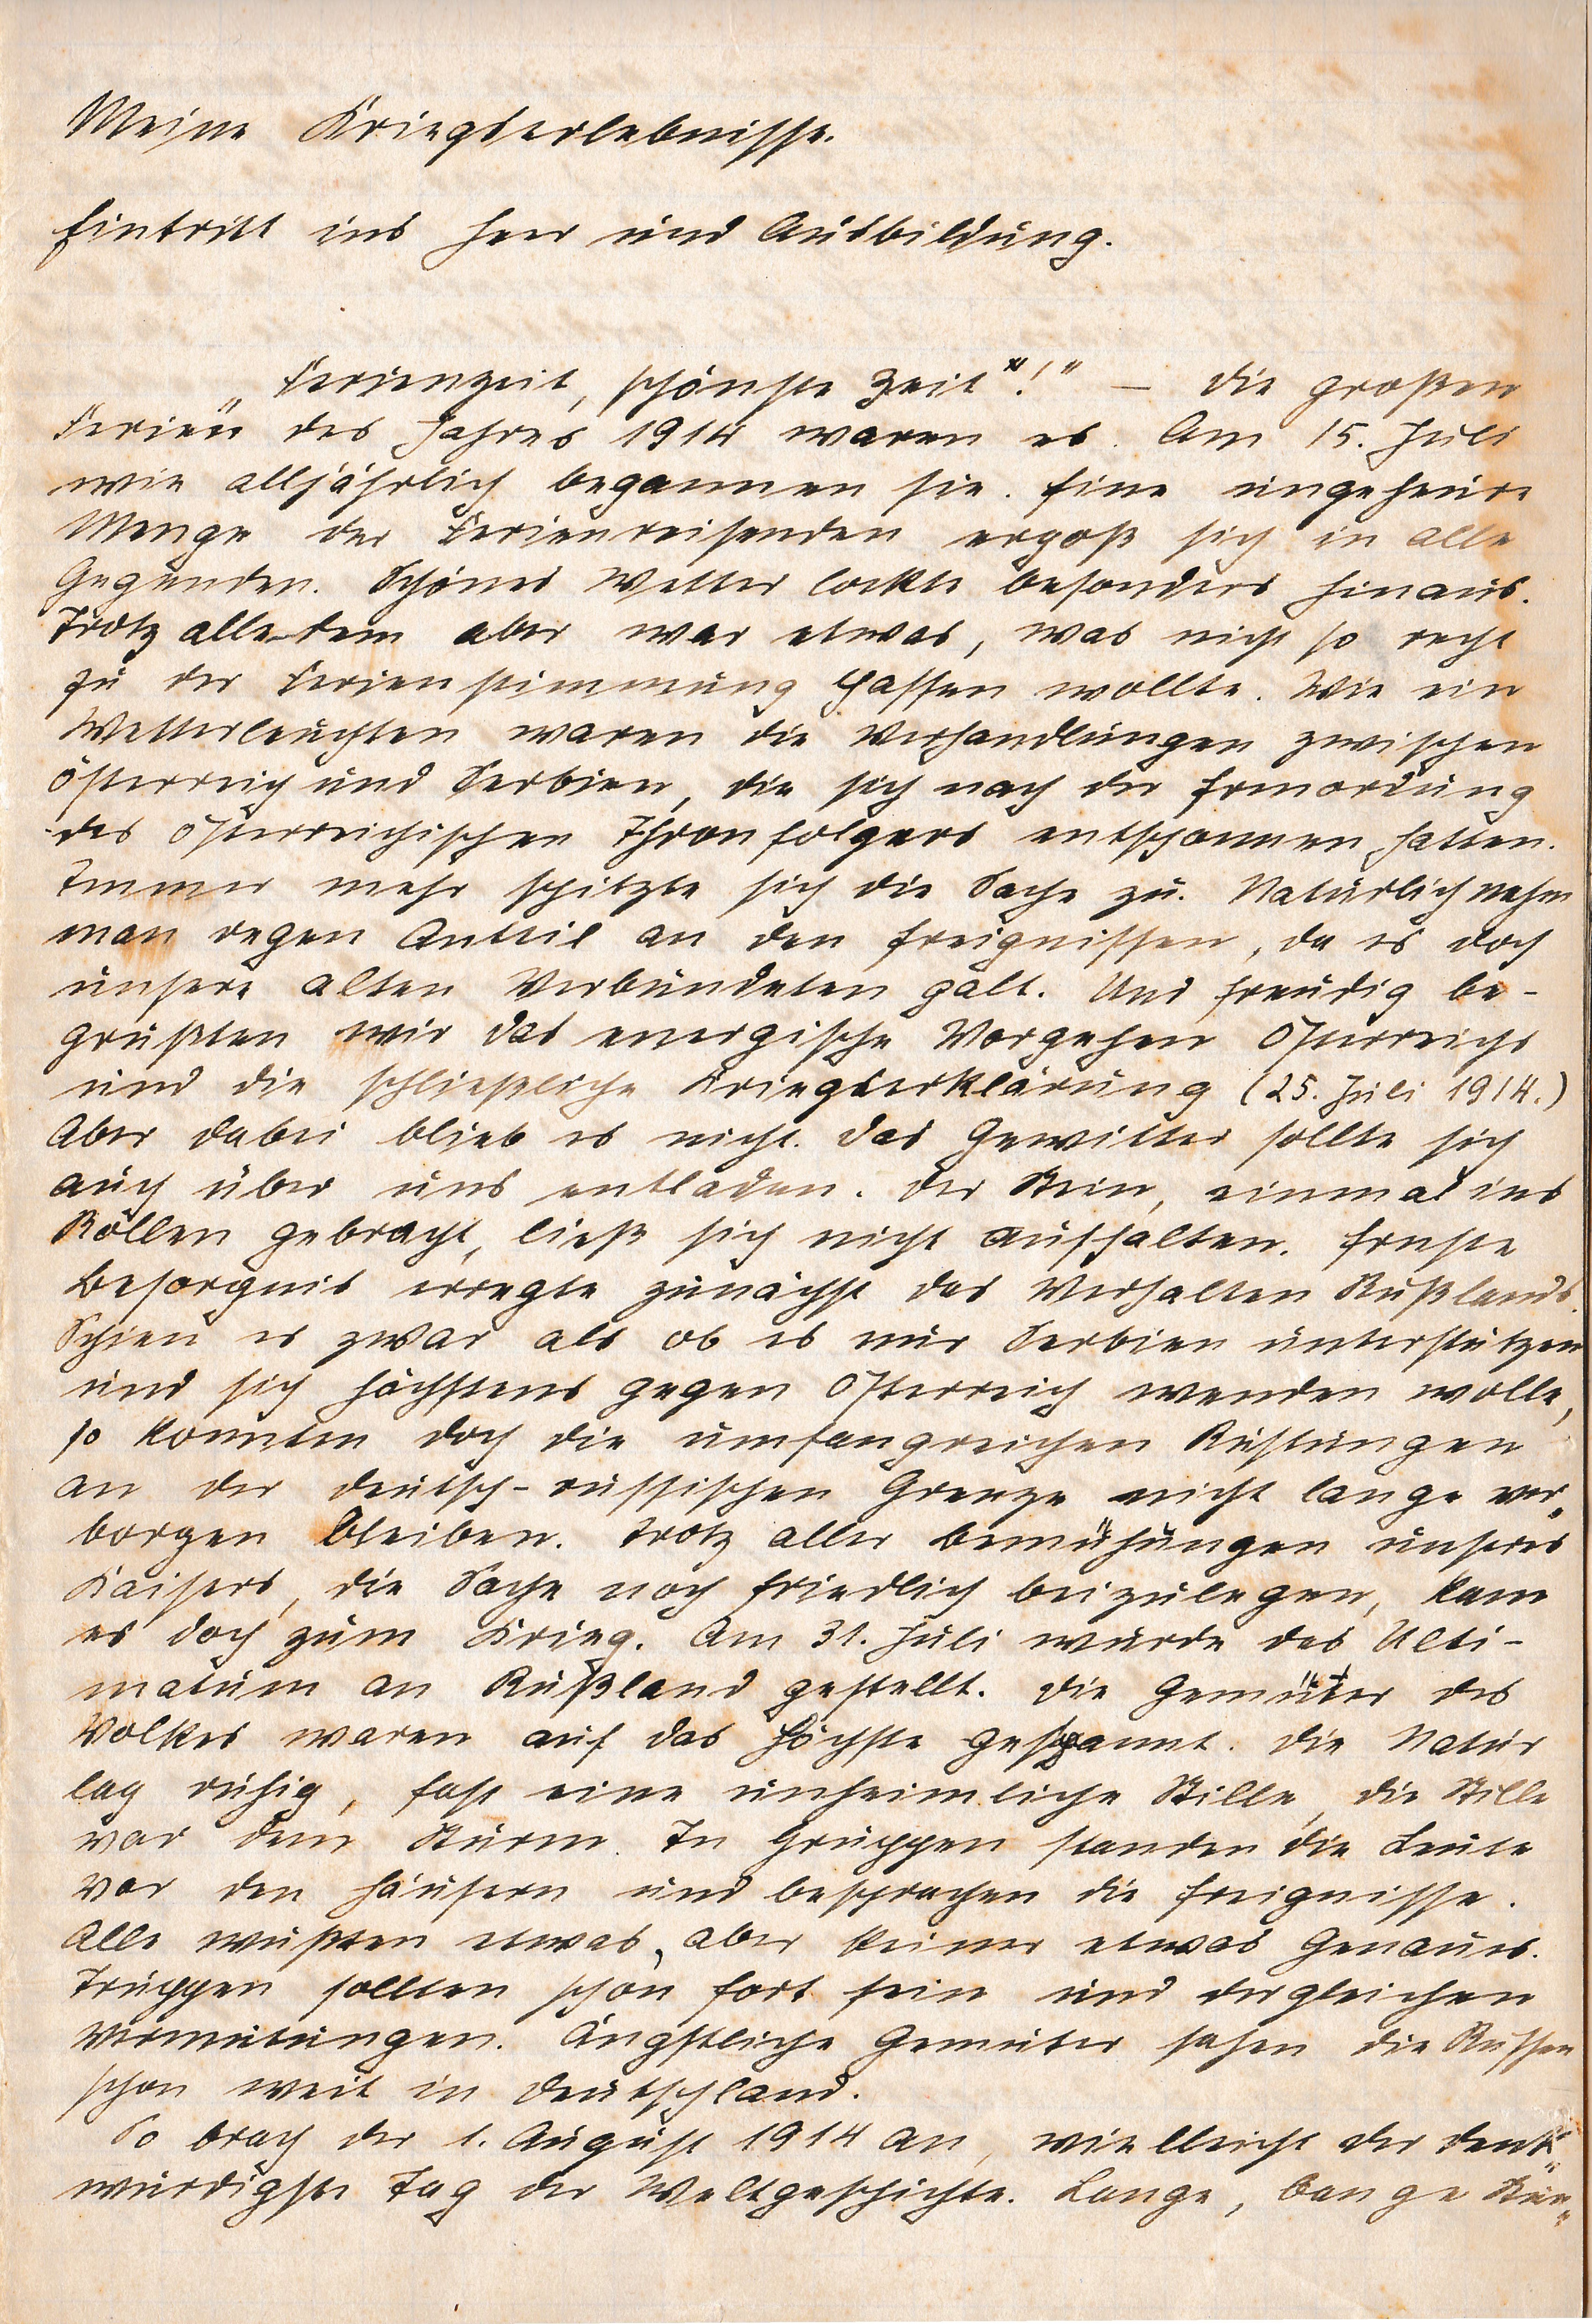 Meine Kriegserlebnisse.
Eintritt ins Heer und Ausbildung.
„Ferienzeit, schönste Zeit"!" — Die großen
Ferien des Jahres 1914 waren es. Am 15. Juli
wie alljährlich begannen sie. Eine ungeheure
Menge der Ferienreisenden ergoß sich in alle
Gegenden. Schönes Wetter lockte besonders hinaus.
Trotz alle-dem aber war etwas, was nicht so recht
zu der Ferienstimmung passen wollte. Wie ein
Wetterleuchten waren die Verhandlungen zwischen
Österreich und Serbien, die sich nach der Ermordung
des österreichischen Thronfolgers entsponnen hatten.
Immer mehr spitzte sich die Sache zu. Natürlich nahm
man regen Anteil an den Ereignissen, da es doch
unsere alten Verbündeten galt. Und freudig be-
grüßten wir das energische Vorgehen Österreichs
und die schließliche Kriegserklärung (25. Juli 1914.)
Aber dabei blieb es nicht. Das Gewitter sollte sich
auch über uns entladen. Der Stein, einmal ins
Rollen gebracht, ließ sich nicht aufhalten. Ernste
Besorgnis erregte zunächst das Verhalten Rußlands.
Schien es zwar als ob es nur Serbien unterstützen
und sich höchstens gegen Österreich wenden wolle,
so konnten doch die umfangreichen Rüstungen
an der deutsch-russischen Grenze nicht lange ver„
borgen bleiben. Trotz aller Bemühungen unseres
Kaisers, die Sache noch friedlich beizulegen, kam
es doch zum Krieg. Am 31. Juli wurde das Ulti-
matum an Rußland gestellt. Die Gemüter des
Volkes waren auf das Höchste gespannt. Die Natur
lag ruhig, fast eine unheimliche Stille, die Stille
vor dem Sturm. In Gruppen standen die Leute
vor den Häusern und besprachen die Ereignisse.
Alle wußten etwas, aber keiner etwas Genaues.
Truppen sollten schon fort sein und dergleichen
Vermutungen. Ängstliche Gemüter sahen die Russen
schon weit in Deutschland.
So brach der 1. August 1914 an, vielleicht der denk„
würdigste Tag der Weltgeschichte. Lange, bange Stun„